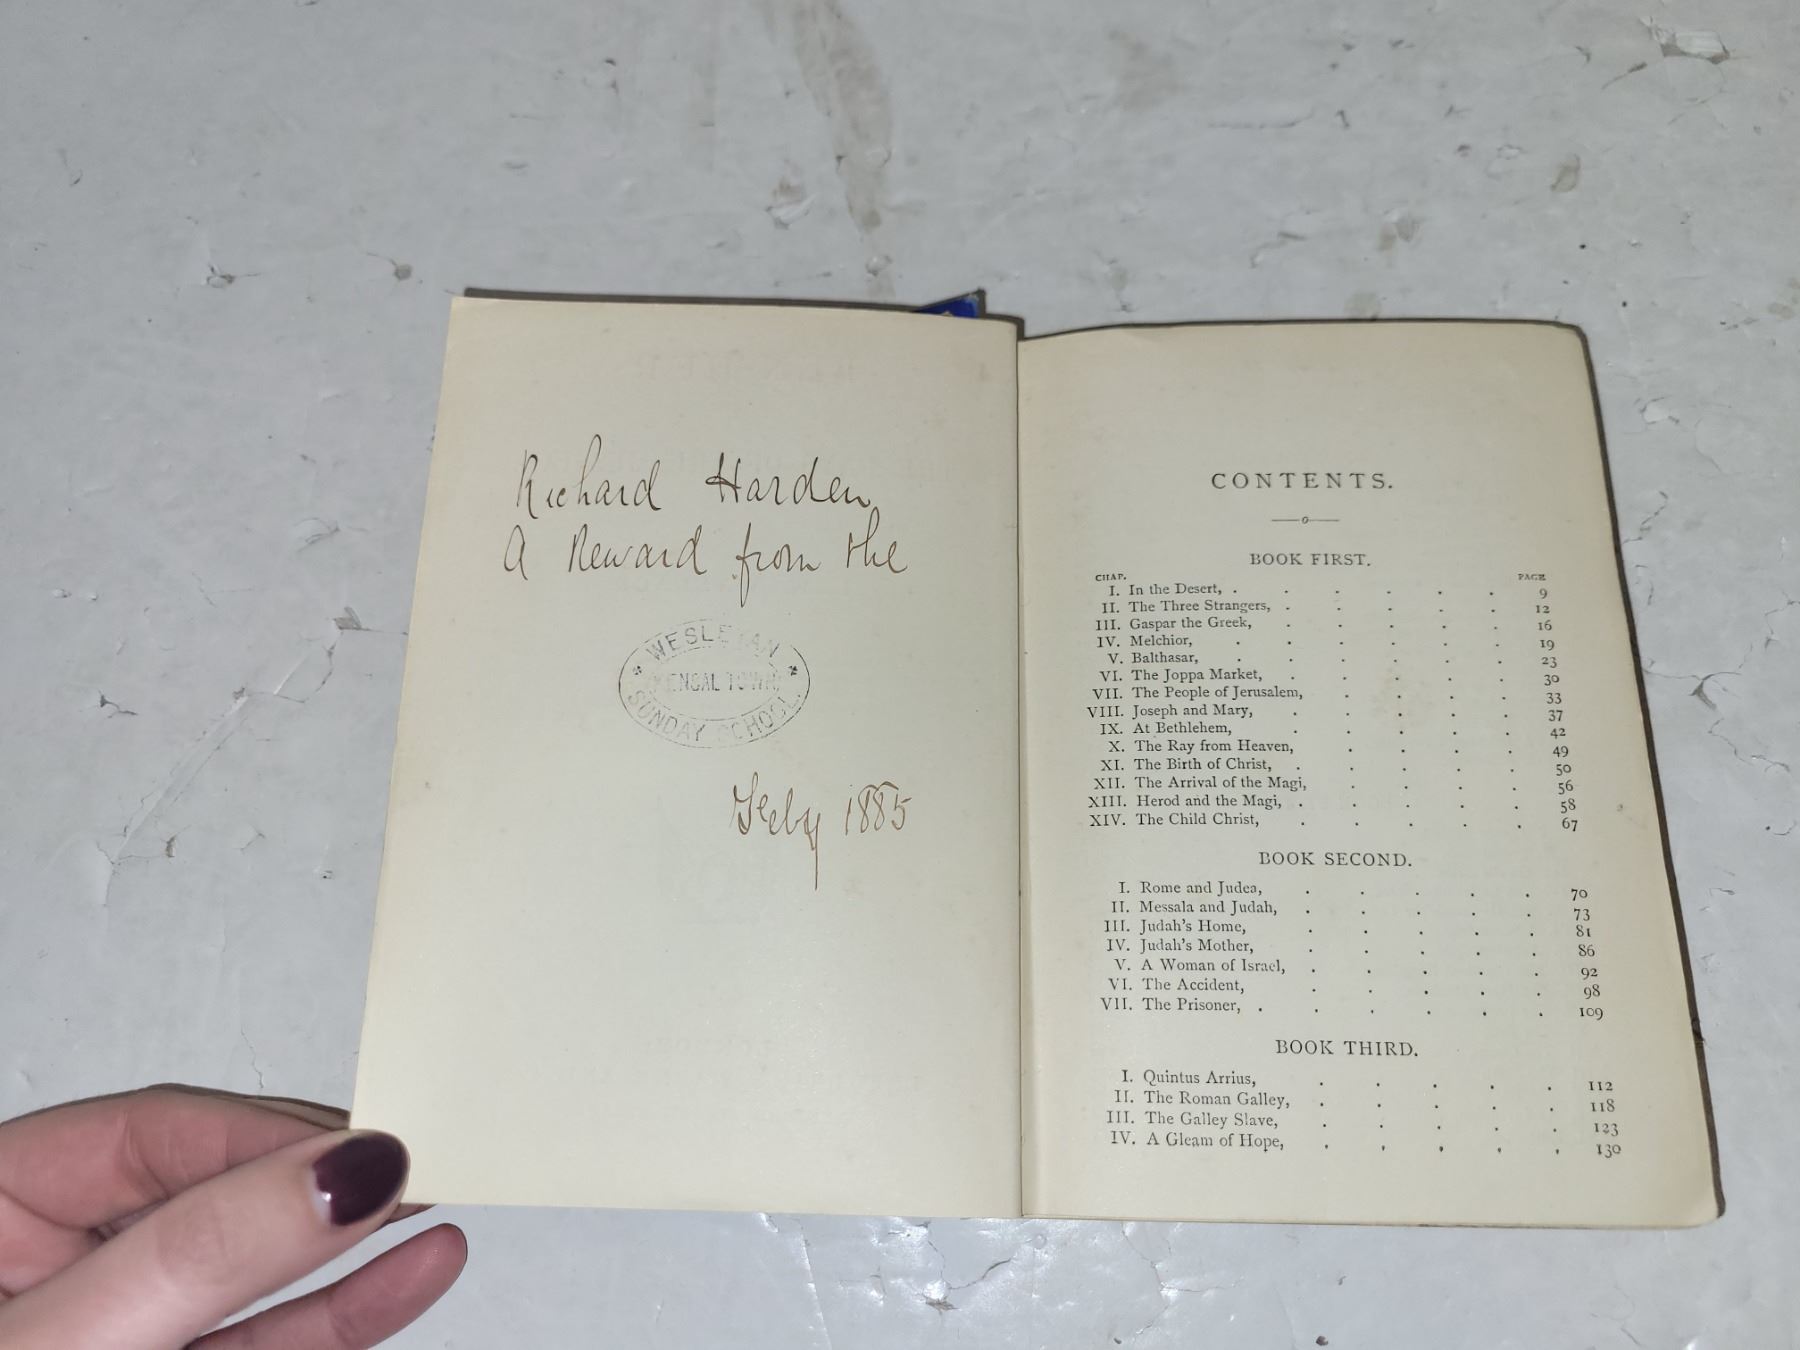 Richard Harden
A Reward from the
WESLEYAN
KENSAL TOWN
SUNDAY SCHOOL
Feby 1885
CONTENTS.
BOOK FIRST.
CHAP. PAGE
I. In the Desert, . . . . . . 9
II. The Three Strangers, . . . . . 12
III. Gaspar the Greek, . . . . . 16
IV. Melchior, . . . . . . 19
V. Balthasar, . . . . . . 23
VI. The Joppa Market, . . . . . 30
VII. The People of Jerusalem, . . . . 33
VIII. Joseph and Mary, . . . . . 37
IX. At Bethlehem, . . . . . 42
X. The Ray from Heaven, . . . . 49
XI. The Birth of Christ, . . . . . 50
XII. The Arrival of the Magi, . . . . 56
XIII. Herod and the Magi, . . . . . 58
XIV. The Child Christ, . . . . . 67
BOOK SECOND.
I. Rome and Judea, . . . . . 70
II. Messala and Judah, . . . . . 73
III. Judah's Home, . . . . . 81
IV. Judah's Mother, . . . . . 86
V. A Woman of Israel, . . . . . 92
VI. The Accident, . . . . . 98
VII. The Prisoner, . . . . . . 109
BOOK THIRD.
I. Quintus Arrius, . . . . . 112
II. The Roman Galley, . . . . . 118
III. The Galley Slave, . . . . . 123
IV. A Gleam of Hope, . . . . . 130